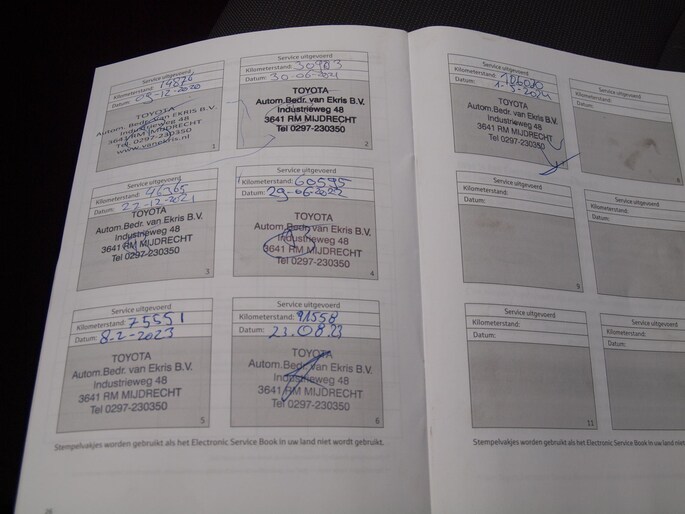 Service uitgevoerd
Kilometerstand: 14876
Datum: 03-12-2020
TOYOTA
Autom. Bedr. van Ekris B.V.
Industrieweg 48
3641 RM MIJDRECHT
Tel. 0297-230350
www.vanekris.nl
1
Service uitgevoerd
Kilometerstand: 30983
Datum: 30-06-2021
TOYOTA
Autom.Bedr. van Ekris B.V.
Industrieweg 48
3641 RM MIJDRECHT
Tel 0297-230350
2
Service uitgevoerd
Kilometerstand: 46365
Datum: 22-12-2021
TOYOTA
Autom.Bedr. van Ekris B.V.
Industrieweg 48
3641 RM MIJDRECHT
Tel 0297-230350
3
Service uitgevoerd
Kilometerstand: 60595
Datum: 29-06-2022
TOYOTA
Autom.Bedr. van Ekris B.V.
Industrieweg 48
3641 RM MIJDRECHT
Tel 0297-230350
4
Service uitgevoerd
Kilometerstand: 75551
Datum: 8-2-2023
TOYOTA
Autom.Bedr. van Ekris B.V.
Industrieweg 48
3641 RM MIJDRECHT
Tel 0297-230350
5
Service uitgevoerd
Kilometerstand: 91558
Datum: 23.08.23
TOYOTA
Autom.Bedr. van Ekris B.V.
Industrieweg 48
3641 RM MIJDRECHT
Tel 0297-230350
6
Stempelvakjes worden gebruikt als het Electronic Service Book in uw land niet wordt gebruikt.
Service uitgevoerd
Kilometerstand: 106010
Datum: 1-3-2024
TOYOTA
Autom.Bedr. van Ekris B.V.
Industrieweg 48
3641 RM MIJDRECHT
Tel 0297-230350
Service uitgevoerd
Kilometerstand:
Datum:
8
Service uitgevoerd
Kilometerstand:
Datum:
9
Service uitgevoerd
Kilometerstand:
Datum:
Service uitgevoerd
Kilometerstand:
Datum:
11
Service uitgevoerd
Kilometerstand:
Datum:
Stempelvakjes worden gebruikt als het Electronic Service Book in uw land niet wordt